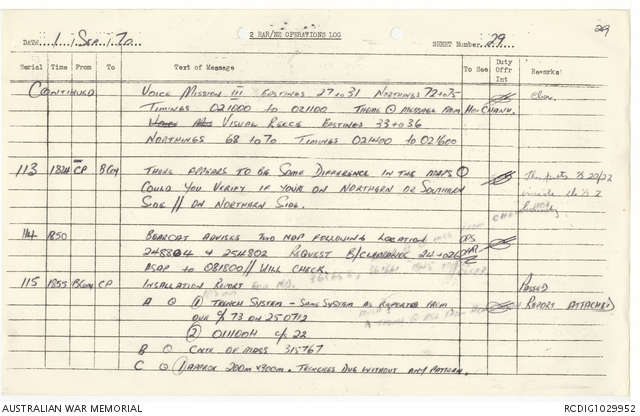 2 RAR/NZ OPERATIONS LOG
29
DATE: 1 / Sep / 70
SHEET Number: 29
Serial Time From To Text of Message To See Duty Offr Int Remarks
CONTINUED VOICE MISSION III EASTINGS 27 to 31 NORTHINGS 72 to 75
TIMINGS 021000 to 021100 THEME MESSAGE FROM
VISUAL RECCE EASTINGS 33 to 36
NORTHINGS 68 to 70 TIMINGS 021400 to 021600
113 1824 CP B Coy THERE APPEARS TO BE SOME DIFFERENCE IN THE MAPS
COULD YOU VERIFY IF YOUR ON NORTHERN OR SOUTHERN
SIDE // ON NORTHERN SIDE.
114 1850 BEARCAT ADVISES TWO NDP FOLLOWING LOCATION
248804 & 254802 REQUEST B/CLEARANCE
ASAP to 081800 // WILL CHECK.
115 1855 CP INSTALLATION REPORT
PASSED
A (1) TRENCH SYSTEM - SAME SYSTEM AS REPORTED FROM REPORT ATTACHED
OUR C/S 73 ON 250712
(2) 011100H C/S 22
B CNTR OF MASS 315767
C (1) APPROX 200m x 300m. TRENCHES DUG WITHOUT ANY PATTERN.
AUSTRALIAN WAR MEMORIAL
RCDIG1029952